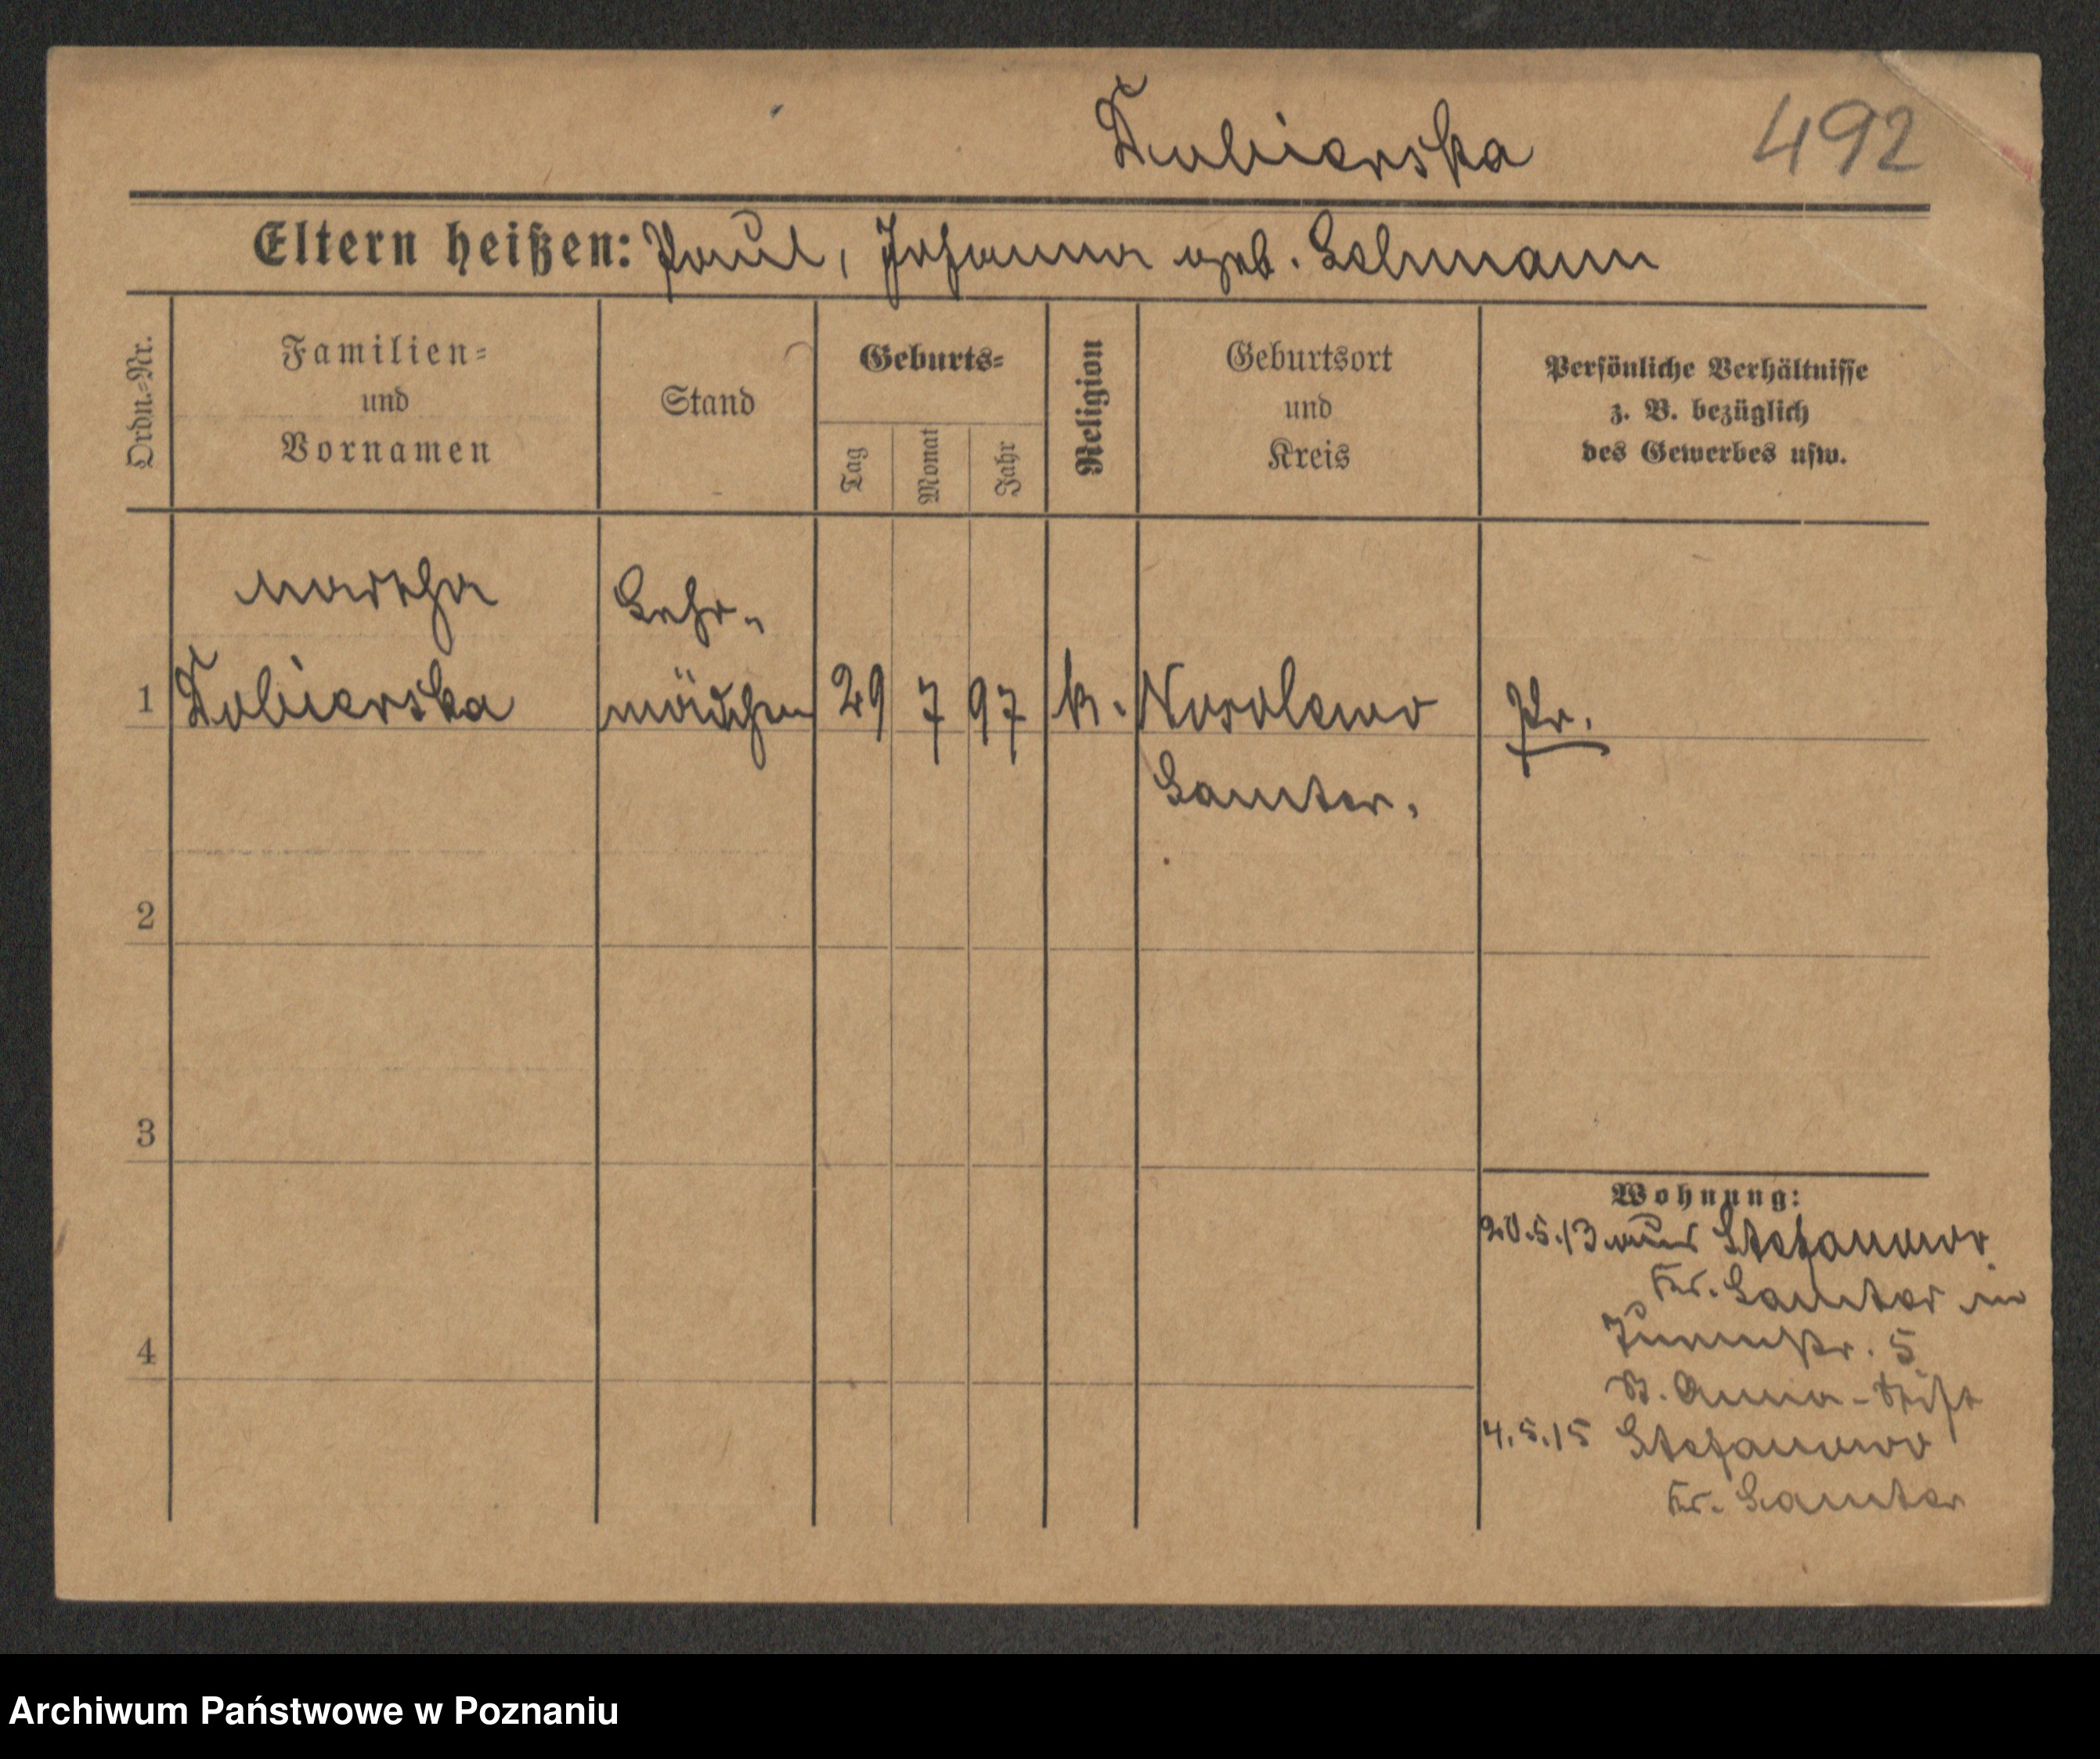 Kubierska 492
Eltern heißen: Paul, Johanna geb. Lehmann
Ordn.-Nr.
Familien-
und
Vornamen
Stand
Geburts-
Tag
Monat
Jahr
Religion
Geburtsort
und
Kreis
Persönliche Verhältnisse
z. B. bezüglich
des Gewerbes usw.
Martha Lehr-
1 Kubierska mädchen 29 7 97 k. Nosalewo Pr.
Samter.
2
3
4
Wohnung:
20.5.13 aus Stefanowo
Kr. Samter in
St. Anna-Stift
4.5.15 Stefanowo
Kr. Samter
Archiwum Państwowe w Poznaniu